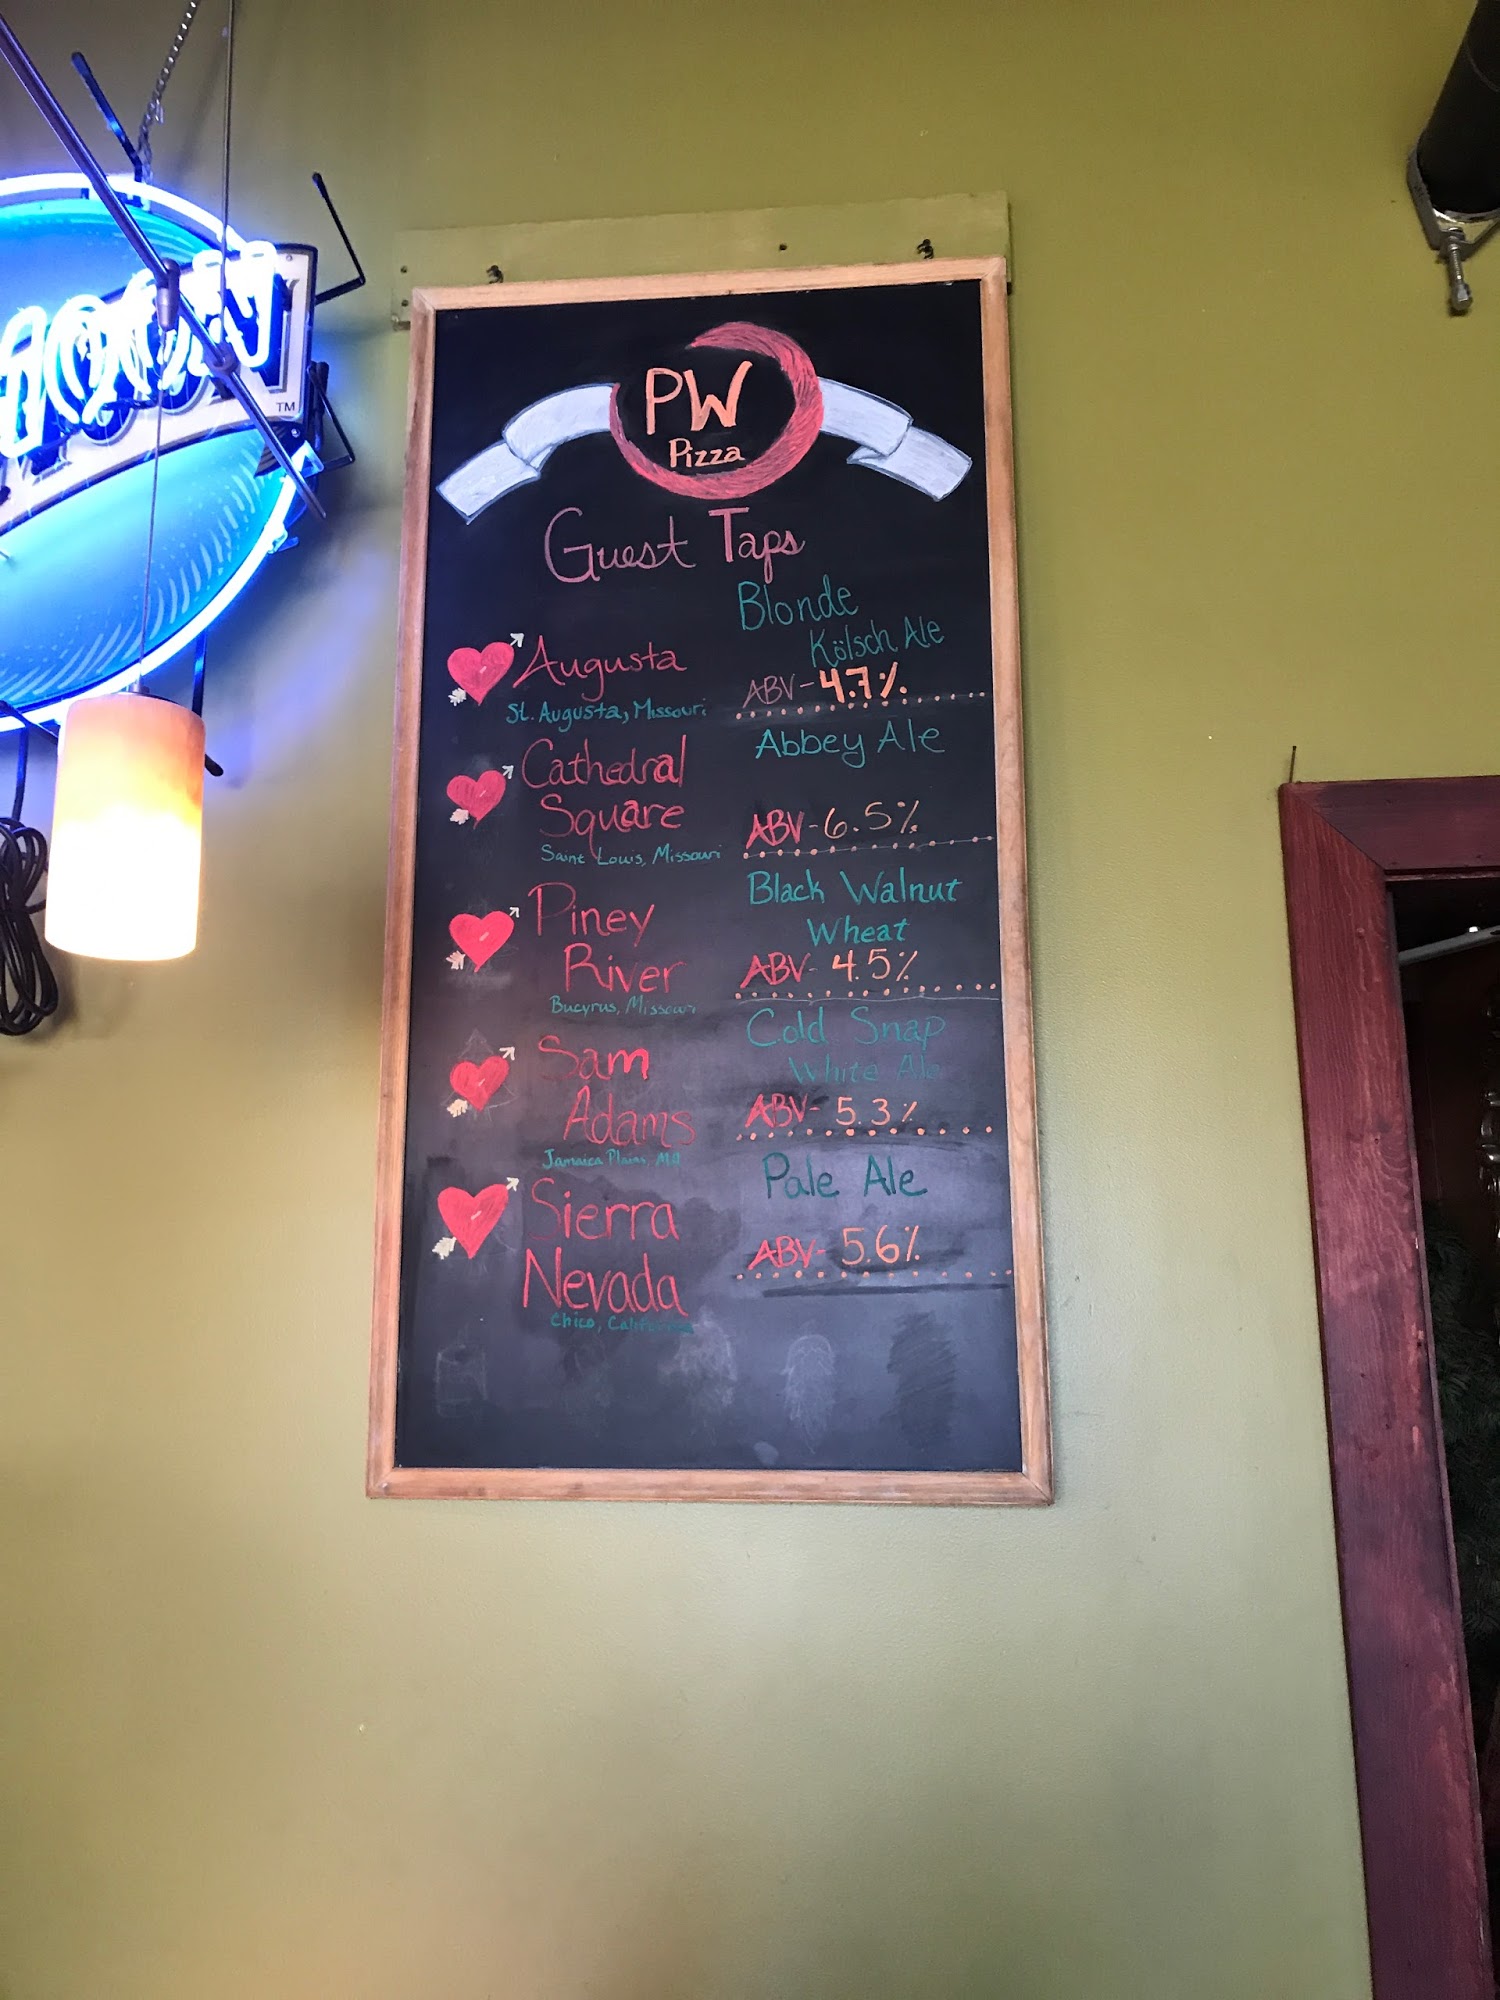 MOON
TM
PW
Pizza
Guest Taps
Augusta
St. Augusta, Missouri
Blonde
Kölsch Ale
ABV-4.7%
Cathedral
Square
Saint Louis, Missouri
Abbey Ale
ABV-6.5%
Piney
River
Bucyrus, Missouri
Black Walnut
Wheat
ABV-4.5%
Sam
Adams
Jamaica Plains, MA
Cold Snap
White Ale
ABV-5.3%
Sierra
Nevada
Chico, California
Pale Ale
ABV-5.6%